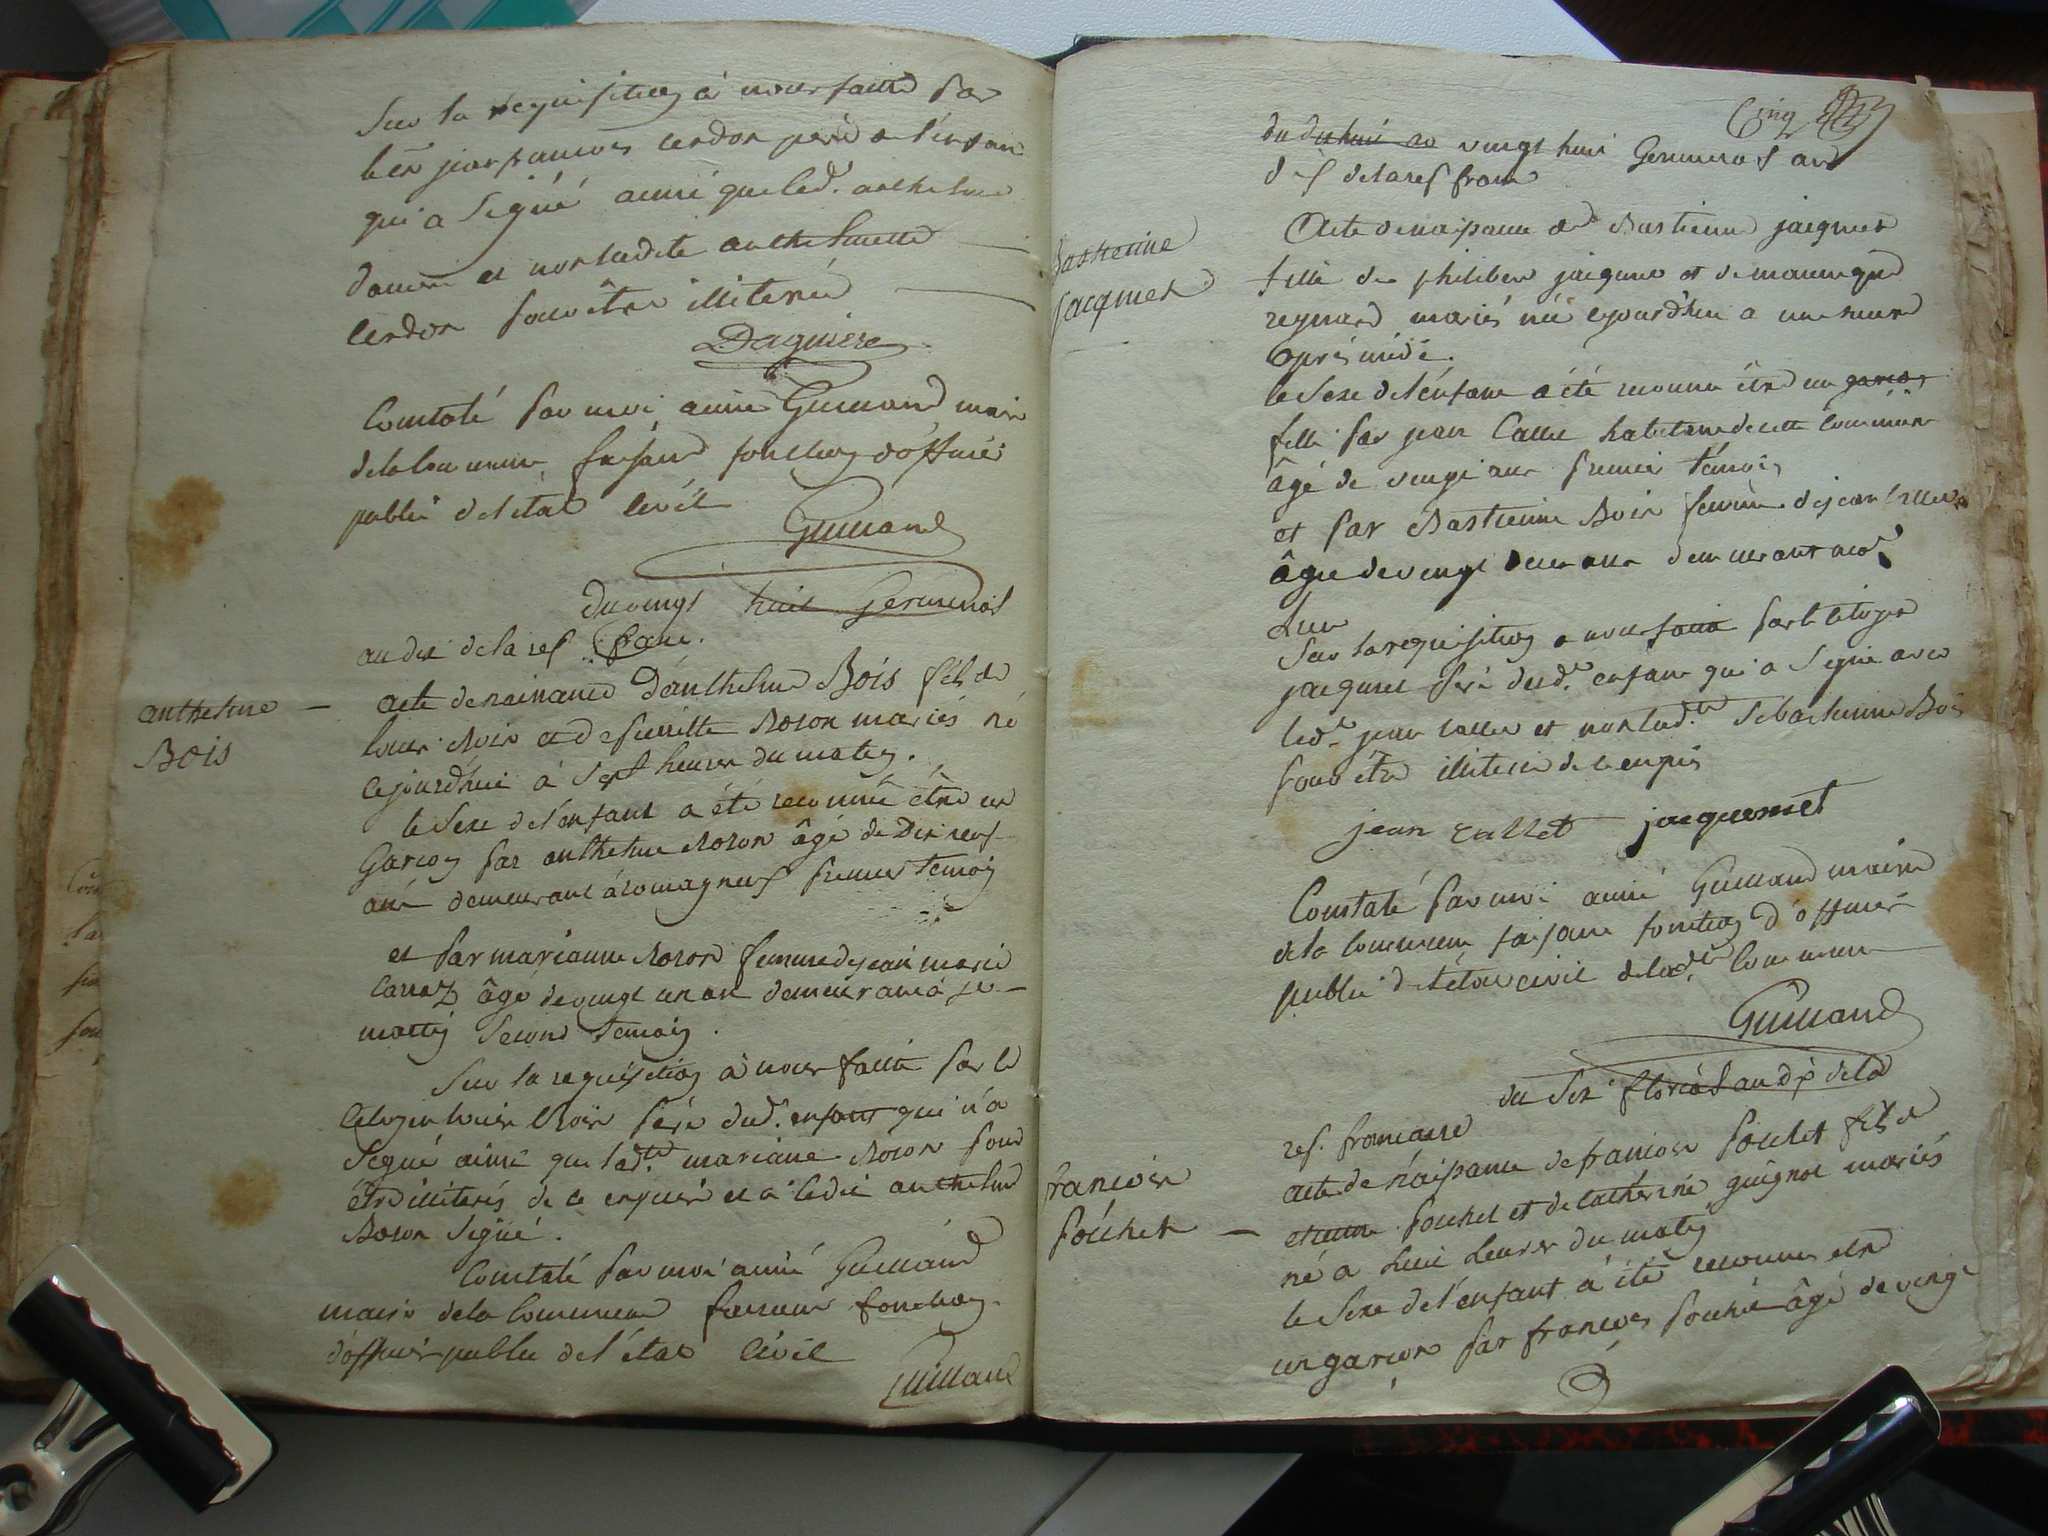 Sur la requisition à nous faitte par
qui a signé ainsi que led. anthelme
et non ladite anthelmette
cerdon pour être illiteré
Daguiere
Constaté par moi aimé Guinand maire
de la commune faisant fonction d'officier
public de l'état civil
Guinand
du vingt huit germinal
an dix de la rep. franc.
anthelme
Bois
acte de naissance d'anthelme Bois fils de
louis Bois et de pierrette Roson mariés né
cejourd'hui à sept heures du matin.
le sexe de l'enfant a été reconnu être un
garcon par anthelme Roson âgé de dix neuf
ans demeurant à romagneux premier temoin
et par marianne Roson femme de jean marie
carraz âgé de vingt un an demeurant à
second temoin.
Sur la requisition à nous faitte par le
citoyen louis Bois père dud. enfant qui n'a
signé ainsi que ladte. mariane Roson pour
être illiterés de ce enquis et a ledit anthelme
Roson signé.
Constaté par moi aimé Guinand
maire de la commune faisant fonction
d'officier public de l'état civil
Guinand
Cinq
du vingt huit Germinal an
dix de la rep franc
Bastienne
Jacquet
Acte de naissance de Bastienne jacquet
fille de philibert jacquet et de
reynard mariés née cejourd'hui a une heure
après midi.
le sexe de l'enfant a été reconnu être un garcon
fille par jean Callet habitant de cette commune
âgé de vingt ans premier témoin
et par Bastienne Bois femme de jean
âgée de vingt deux ans demeurant
Sur la requisition a nous faitte par le citoyen
jacquet père dud. enfant qui a signé avec
led. jean callet et non ladte. Sebastienne Bois
pour être illiterée de ce enquis
jean callet jacquemet
Constaté par moi aimé Guinand maire
de la commune faisant fonction d'officier
public de l'état civil de ladte. commune
Guinand
du six floréal an dix de la
rep. francaise
francois
pouchet
acte de naissance de francois pouchet fils de
etienne pouchet et de catherine guignot mariés
né a huit heures du matin
le sexe de l'enfant a été reconnu etre
un garcon par francois pouchet âgé de vingt